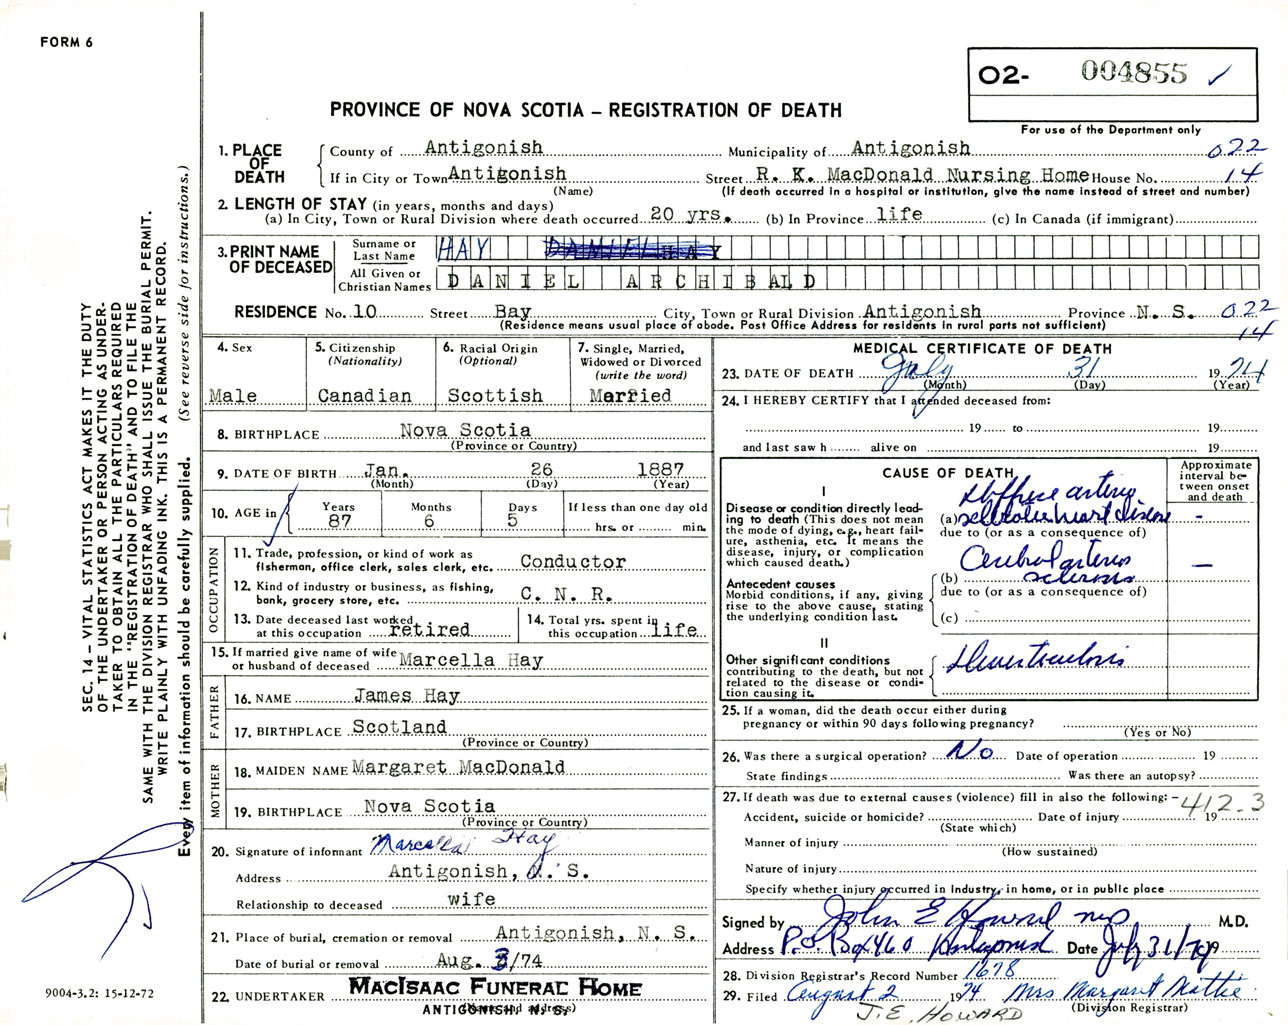 FORM 6
O2- 004855 ✓
PROVINCE OF NOVA SCOTIA – REGISTRATION OF DEATH
For use of the Department only
1. PLACE OF DEATH County of Antigonish Municipality of Antigonish 022
If in City or Town Antigonish Street R. K. MacDonald Nursing Home House No. 14
(Name) (If death occurred in a hospital or institution, give the name instead of street and number)
2. LENGTH OF STAY (in years, months and days)
(a) In City, Town or Rural Division where death occurred 20 yrs. (b) In Province life (c) In Canada (if immigrant)
3. PRINT NAME OF DECEASED
Surname or Last Name HAY DANIEL HAY
All Given or Christian Names DANIEL ARCHIBALD
RESIDENCE No. 10 Street Bay City, Town or Rural Division Antigonish Province N. S. 022
(Residence means usual place of abode. Post Office Address for residents in rural parts not sufficient) 14
4. Sex
Male
5. Citizenship
(Nationality)
Canadian
6. Racial Origin
(Optional)
Scottish
7. Single, Married,
Widowed or Divorced
(write the word)
Married
8. BIRTHPLACE Nova Scotia
(Province or Country)
9. DATE OF BIRTH Jan. 26 1887
(Month) (Day) (Year)
10. AGE in
Years Months Days If less than one day old
87 6 5 hrs. or min.
OCCUPATION
11. Trade, profession, or kind of work as
fisherman, office clerk, sales clerk, etc. Conductor
12. Kind of industry or business, as fishing,
bank, grocery store, etc. C. N. R.
13. Date deceased last worked
at this occupation retired
14. Total yrs. spent in
this occupation life
15. If married give name of wife
or husband of deceased Marcella Hay
FATHER
16. NAME James Hay
17. BIRTHPLACE Scotland
(Province or Country)
MOTHER
18. MAIDEN NAME Margaret MacDonald
19. BIRTHPLACE Nova Scotia
(Province or Country)
20. Signature of informant Marcella Hay
Address Antigonish, N. S.
Relationship to deceased wife
21. Place of burial, cremation or removal Antigonish, N. S.
Date of burial or removal Aug. 3/74
22. UNDERTAKER MACISAAC FUNERAL HOME
ANTIGONISH, N. S.
(Name and address)
MEDICAL CERTIFICATE OF DEATH
23. DATE OF DEATH July 31 1974
(Month) (Day) (Year)
24. I HEREBY CERTIFY that I attended deceased from:
19 to 19
and last saw h alive on 19
CAUSE OF DEATH
Approximate
interval be-
tween onset
and death
I
Disease or condition directly lead-
ing to death (This does not mean
the mode of dying, e.g., heart fail-
ure, asthenia, etc. It means the
disease, injury, or complication
which caused death.)
Diffuse arterio
(a) sclerotic heart disease -
due to (or as a consequence of)
Antecedent causes
Morbid conditions, if any, giving
rise to the above cause, stating
the underlying condition last.
Cerebral arterio
(b) sclerosis –
due to (or as a consequence of)
(c)
II
Other significant conditions
contributing to the death, but not
related to the disease or condi-
tion causing it.
Diverticulosis
25. If a woman, did the death occur either during
pregnancy or within 90 days following pregnancy?
(Yes or No)
26. Was there a surgical operation? No Date of operation 19
State findings Was there an autopsy?
27. If death was due to external causes (violence) fill in also the following: – 412.3
Accident, suicide or homicide? Date of injury 19
(State which)
Manner of injury
(How sustained)
Nature of injury
Specify whether injury occurred in Industry, in home, or in public place
Signed by John E Howard MD M.D.
Address P.O. Box 460 Antigonish Date July 31/74 19
28. Division Registrar's Record Number 1678
29. Filed August 2 1974 Mrs Margaret Mattie
(Division Registrar)
J.E. HOWARD
SEC. 14 – VITAL STATISTICS ACT MAKES IT THE DUTY
OF THE UNDERTAKER OR PERSON ACTING AS UNDER-
TAKER TO OBTAIN ALL THE PARTICULARS REQUIRED
IN THE "REGISTRATION OF DEATH" AND TO FILE THE
SAME WITH THE DIVISION REGISTRAR WHO SHALL ISSUE THE BURIAL PERMIT.
WRITE PLAINLY WITH UNFADING INK. THIS IS A PERMANENT RECORD.
Every item of information should be carefully supplied. (See reverse side for instructions.)
9004-3.2: 15-12-72